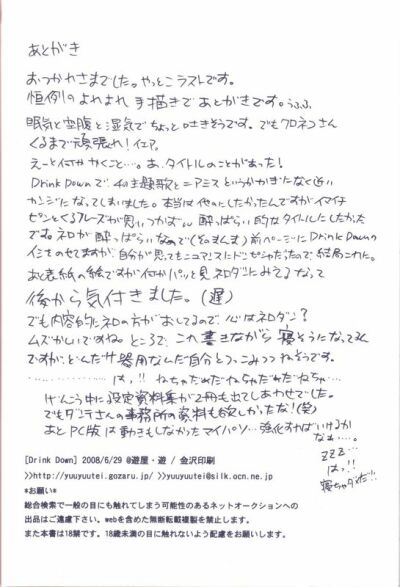 あとがき
おつかれさまでした。やっとこラストです。
恒例のよれよれ手描きであとがきです。うふふ
眠気と空腹と湿気でちょっと吐きそうです。でもクロネコさん
くるまで頑張れ!イエア。
えーと何かかくこと…。あ、タイトルのことがあった!
Drink Downで、4の主題歌とニアミスというかかぎりなく近い
カンジになってしまいました。本当は他のにしたかったんですがイマイチ
ピンとくるフレーズが思いつかず。酔っぱらい的なタイトルにしたかった
です。ネロが酔っぱらいなので(そのまんま)前ページにDrink Downの
イミをのせてますが、自分が思ってたニュアンスにドンピシャだったので結局これに。
あと表紙の絵ですが何かパッと見ネロダンにみえるなって
後から気付きました。(遅)
でも内容的にネロの方がおしてるので、心はネロダン?
ムズかしいですね。ところで、これ書きながら寝そうになってるん
ですが、どんだけ器用なんだ自分とつっこみつつねそうです。
……………は、!! ねちゃだめだねちゃだめだねちゃ…
げんこう中に設定資料集が2冊も出てしあわせでした。
でもダンテさんの事務所の資料も欲しかったな!(笑)
あとPC版は動きもしなかったマイパソ…強化すればいけるか
なぁ…。
ZZZ…
はっ!!
寝ちゃダメだ!!
[Drink Down] 2008/6/29 @遊屋・遊 / 金沢印刷
>>http://yuuyuutei.gozaru.jp/ >>yuuyuutei@silk.ocn.ne.jp
*お願い*
総合検索で一般の目にも触れてしまう可能性のあるネットオークションへの
出品はご遠慮下さい。webを含めた無断転載複製を禁止します。
また本書は18禁です。18歳未満の目に触れないよう配慮をお願いします。